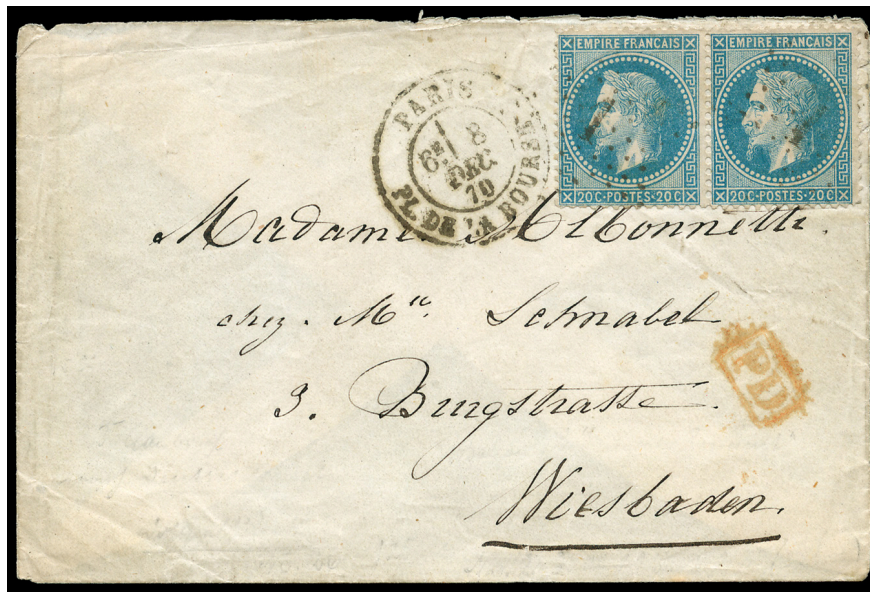 EMPIRE FRANÇAIS
20 C - POSTES - 20 C
EMPIRE FRANÇAIS
20 C - POSTES - 20 C
PARIS
8
DEC
70
PL. DE LA BOURSE
Madame
chez. Mlle. Schnabel
PD
3. Burgstrasse.
Wiesbaden.